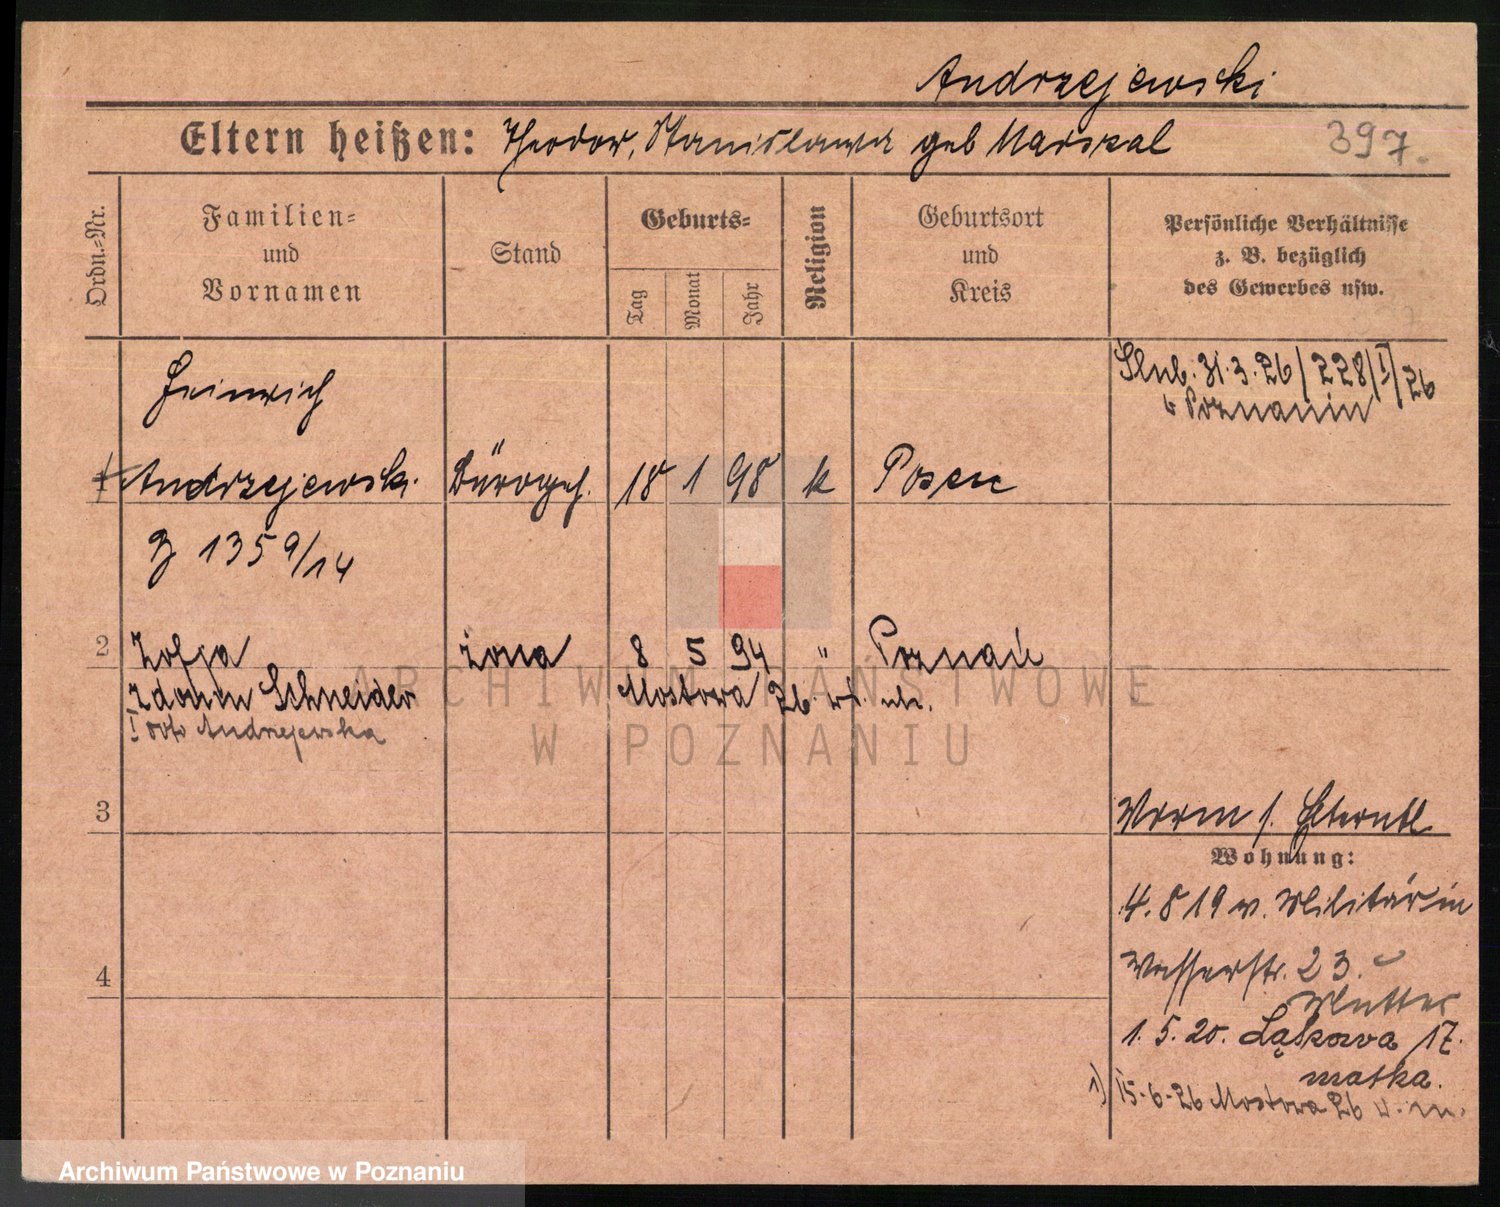 Andrzejewski
Eltern heißen: Theodor, Stanislawa geb Marskal
397.
Ordn.-Nr.
Familien-
und
Vornamen
Stand
Geburts-
Tag
Monat
Jahr
Religion
Geburtsort
und
Kreis
Persönliche Verhältnisse
z. B. bezüglich
des Gewerbes usw.
Ślub. 31.3.26/228/I/26
w Poznaniu
Heinrich
1 Andrzejewski Bürogeh. 18 1 98 k Posen
Z 1359/14
2 Zofja żona 8 5 94 " Poznań
Zdom Schneider Mostowa 26
I voto Andrzejewska
3
Worm s. Elterntl
Wohnung:
4.8 19 v. Militär in
Wasserstr. 23.
Mutter
4
1.5.20. Łąkowa 17.
matka.
1) 15-6-26 Mostowa 26 u. m.
ARCHIWUM PAŃSTWOWE
W POZNANIU
Archiwum Państwowe w Poznaniu